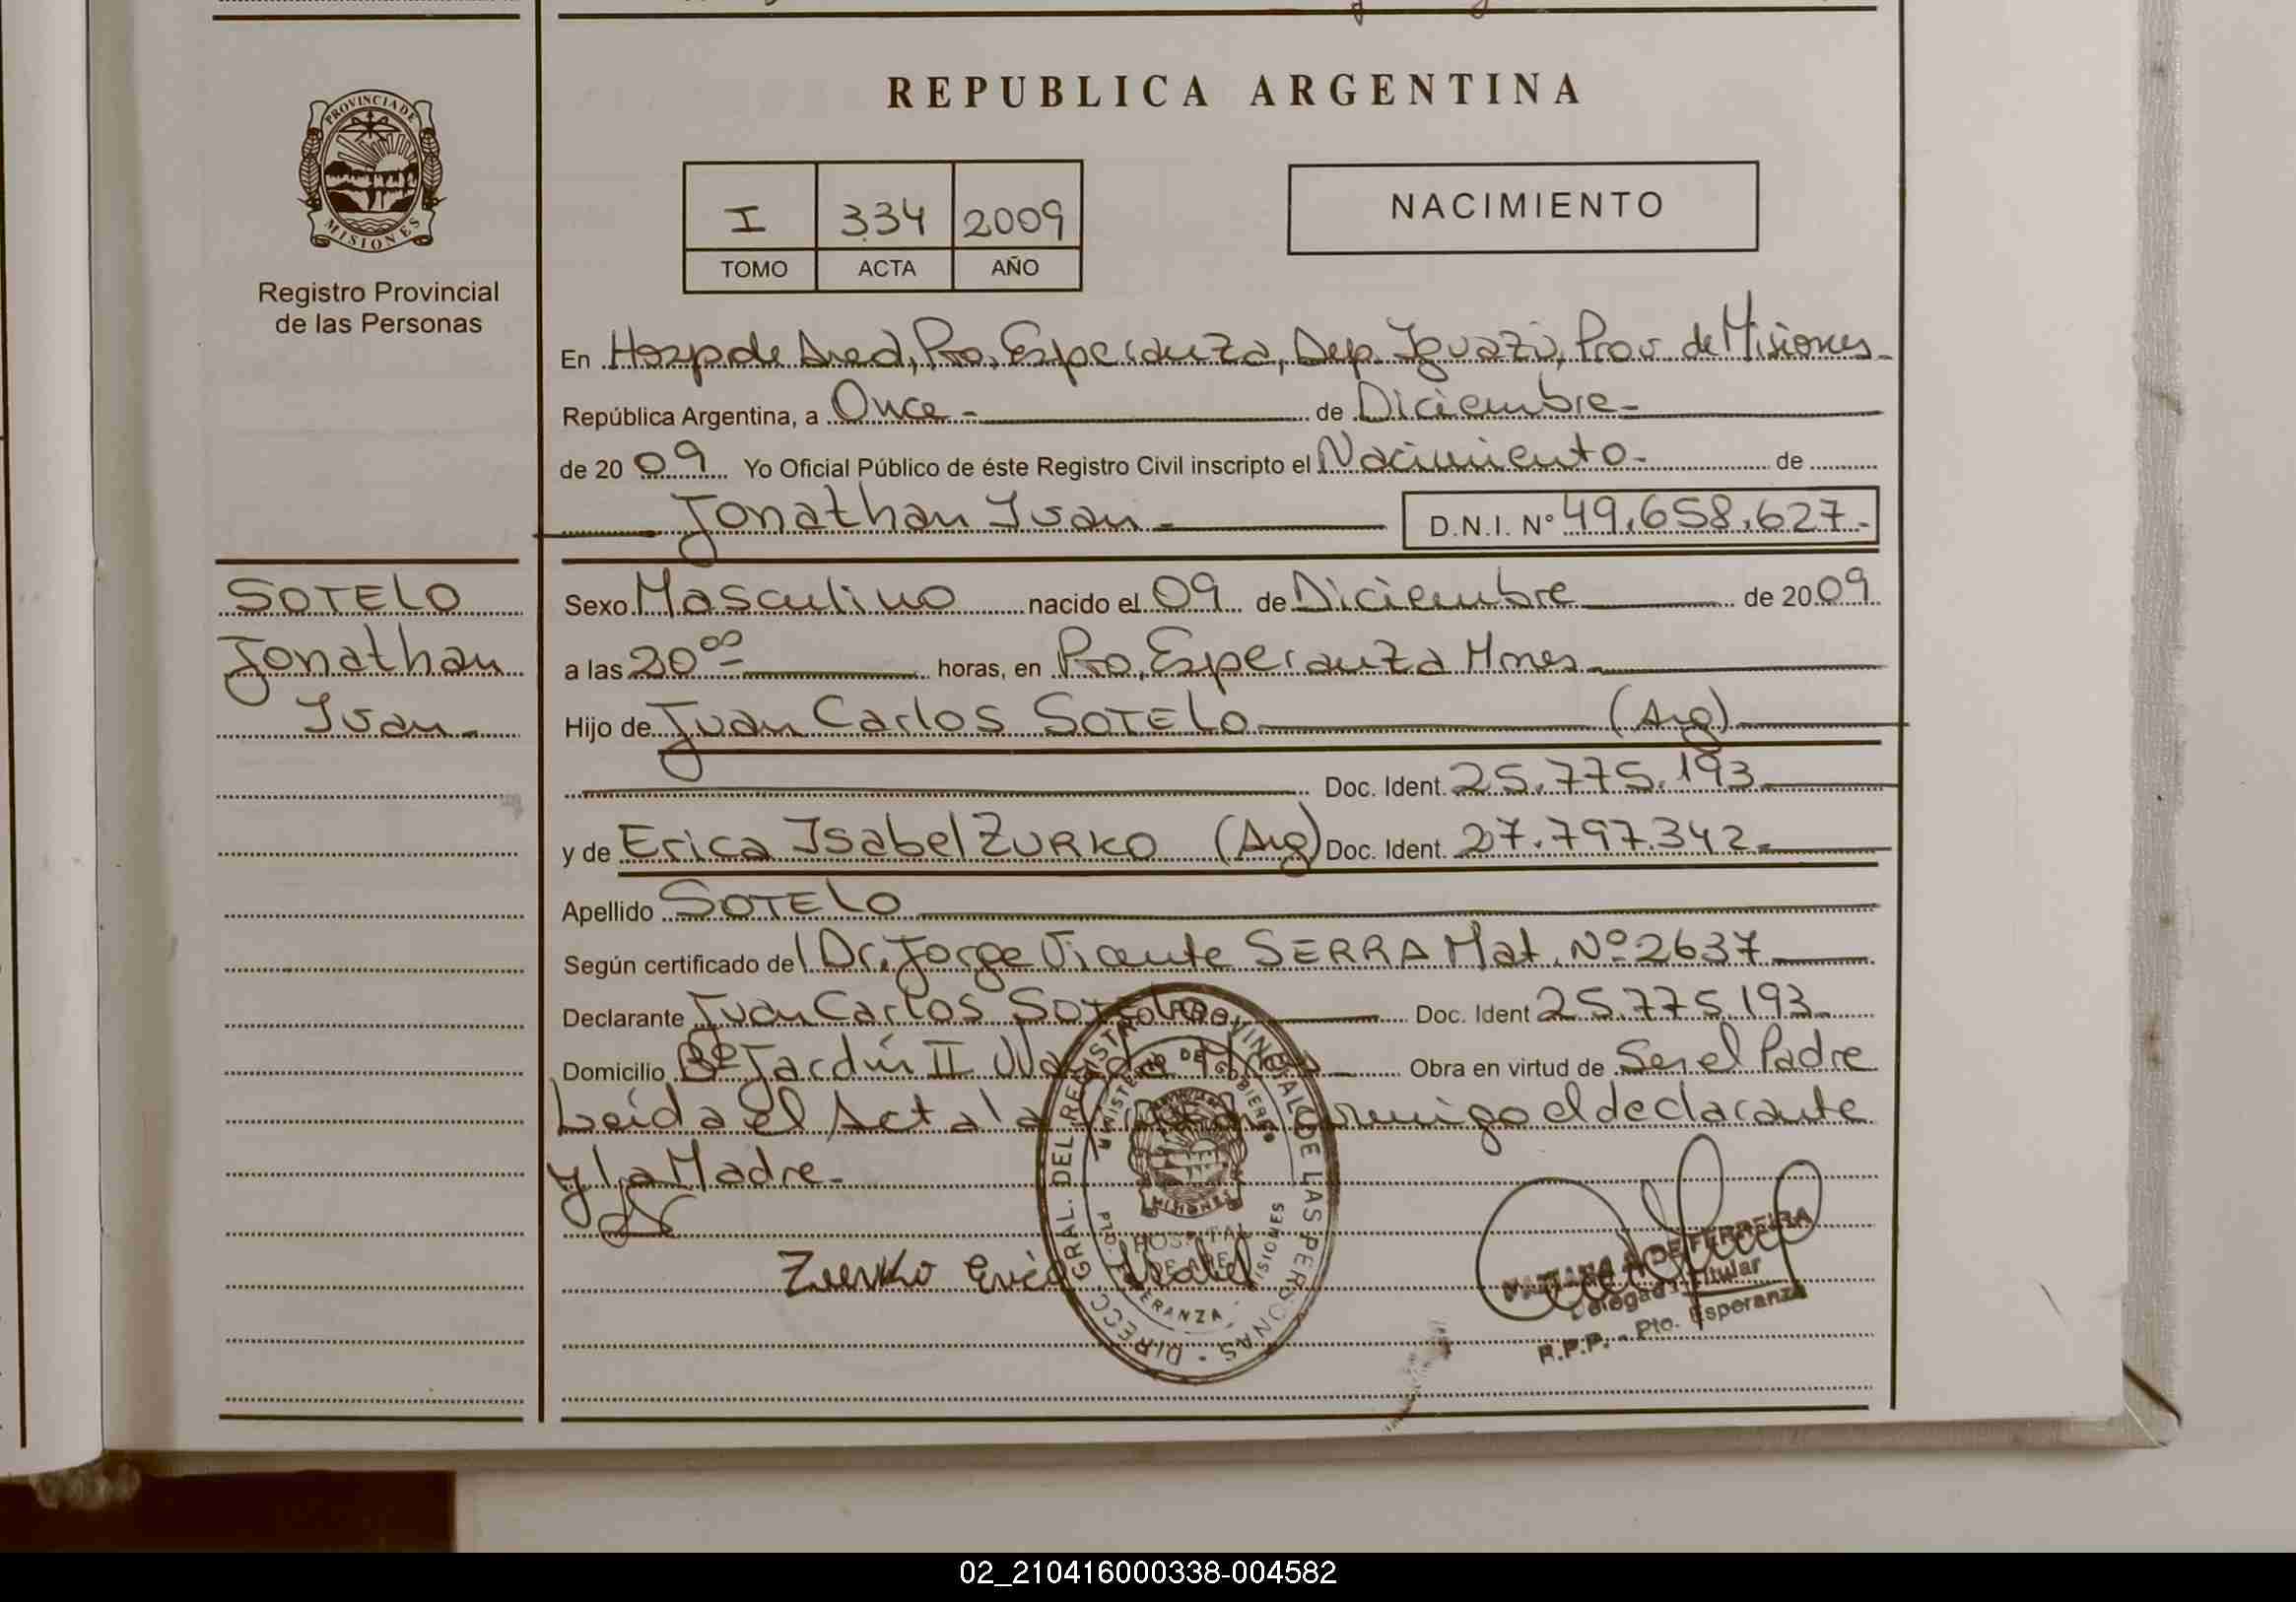 REPUBLICA ARGENTINA
PROVINCIA DE
MISIONES
Registro Provincial
de las Personas
I 334 2009
TOMO ACTA AÑO
NACIMIENTO
En Hosp de Area, Pto. Esperanza, Dep. Iguazú, Prov de Misiones-
República Argentina, a Once- de Diciembre-
de 2009 Yo Oficial Público de éste Registro Civil inscripto el Nacimiento- de
Jonathan Ivan- D.N.I. Nº 49.658.627-
SOTELO
Jonathan
Ivan-
Sexo Masculino nacido el 09 de Diciembre de 2009
a las 20⁰⁰ horas, en Pto, Esperanza Mnes-
Hijo de Juan Carlos SOTELO (Arg)
Doc. Ident. 25.775.193
y de Erica Isabel ZURKO (Arg) Doc. Ident. 27.797.342-
Apellido SOTELO
Según certificado del Dr. Jorge Vicente SERRA Mat. Nº 2637
Declarante Juan Carlos Sotelo Doc. Ident 25.775.193-
Domicilio Bº Jardín II Wanda Mnes Obra en virtud de Ser el Padre
Leída el Acta la firman conmigo el declarante
y la Madre-
Zurko Erica Isabel
DIRECC. GRAL. DEL REGISTRO PROVINCIAL DE LAS PERSONAS
MINISTERIO DE GOBIERNO
MISIONES
HOSPITAL
DE AREA
PTO. ESPERANZA - MISIONES
A DE FERREIRA
Delegada Titular
R.P.P. - Pto. Esperanza
02_210416000338-004582